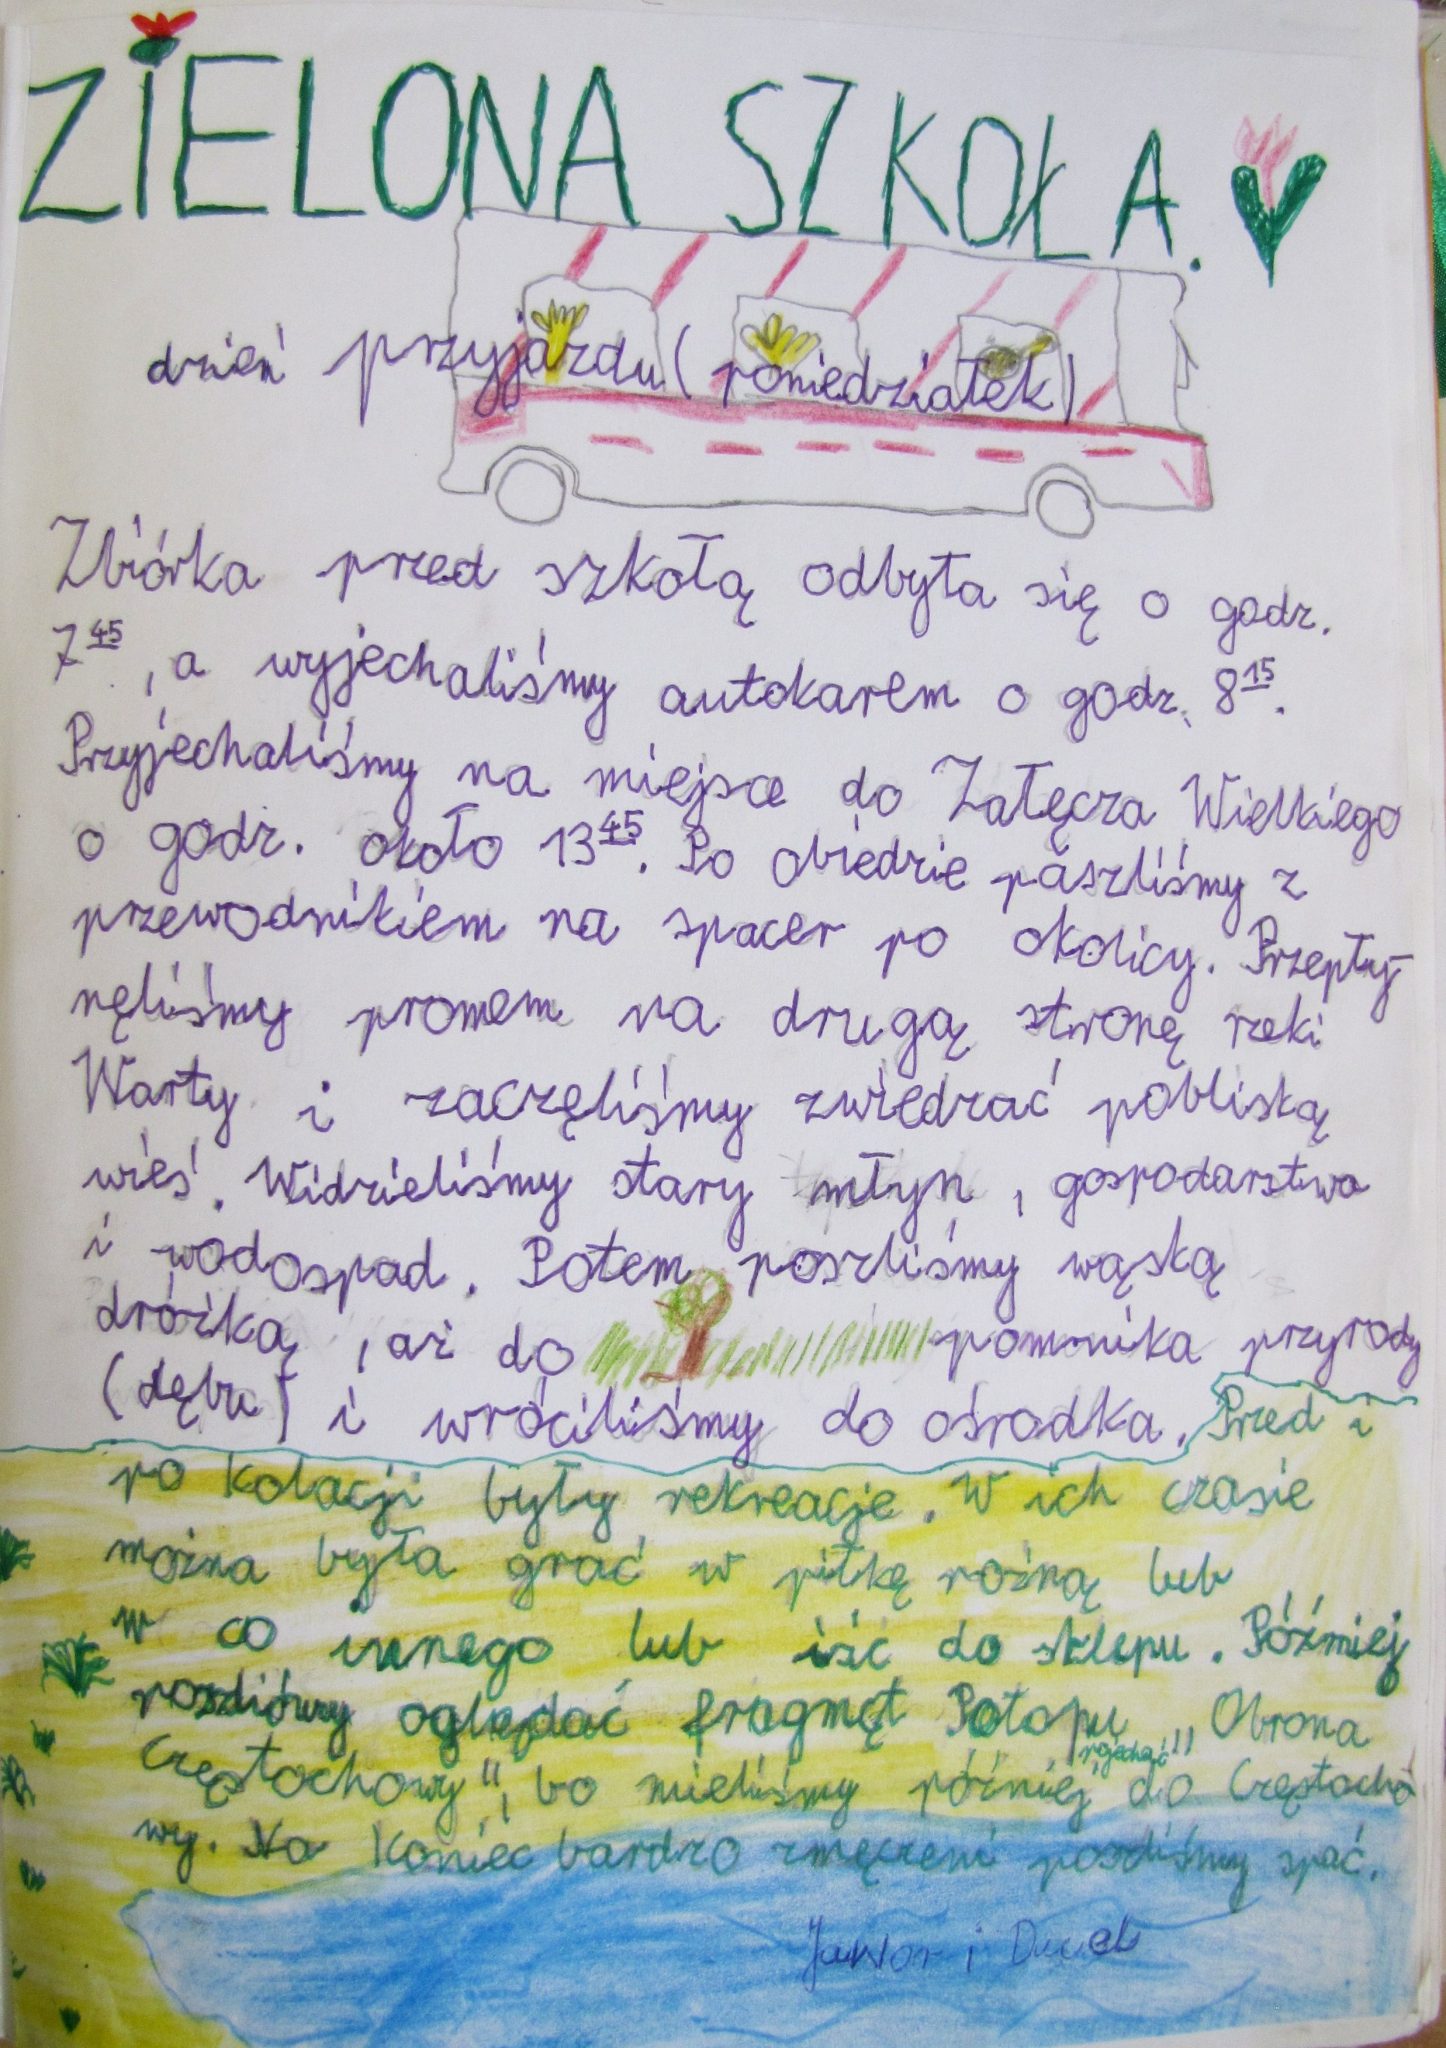 ZIELONA SZKOŁA.
dzień przyjazdu (poniedziałek)
Zbiórka przed szkołą odbyła się o godz.
7 45, a wyjechaliśmy autokarem o godz. 8 15.
Przyjechaliśmy na miejsce do Załęcza Wielkiego
o godz. około 13 45. Po obiedzie poszliśmy z
przewodnikiem na spacer po okolicy. Przepły-
nęliśmy promem na drugą stronę rzeki
Warty i zaczęliśmy zwiedzać pobliską
wieś. Widzieliśmy stary młyn, gospodarstwa
i wodospad. Potem poszliśmy wąską
dróżką, aż do pomonika przyrody
(dębu) i wróciliśmy do ośrodka. Przed i
po kolacji były rekreacje. W ich czasie
można była grać w piłkę nożną lub
w co innego lub iść do sklepu. Później
poszliśmy oglądać fragmęt Potopu „Obrona
Częstochowy", bo mieliśmy później pojechać do Częstocho
wy. Na koniec bardzo zmęczeni poszliśmy spać.
Jawor i